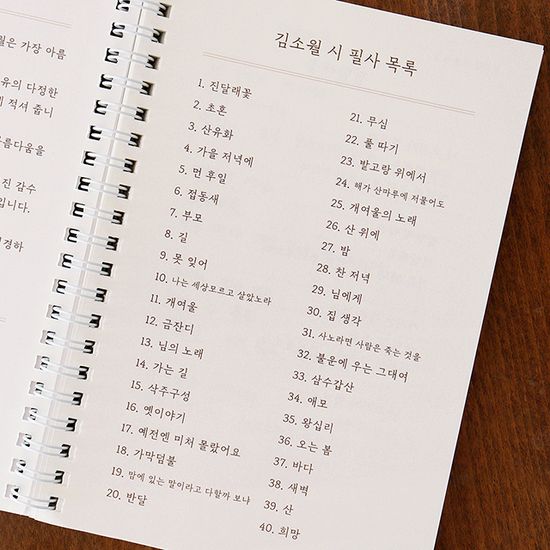 월은 가장 아름
유의 다정한
에 적셔 줍니
름다움을
진 감수
입니다.
경하
김소월 시 필사 목록
1. 진달래꽃
2. 초혼
3. 산유화
4. 가을 저녁에
5. 먼 후일
6. 접동새
7. 부모
8. 길
9. 못 잊어
10. 나는 세상모르고 살았노라
11. 개여울
12. 금잔디
13. 님의 노래
14. 가는 길
15. 삭주구성
16. 옛이야기
17. 예전엔 미처 몰랐어요
18. 가막덤불
19. 맘에 있는 말이라고 다할까 보냐
20. 반달
21. 무심
22. 풀 따기
23. 밭고랑 위에서
24. 해가 산마루에 저물어도
25. 개여울의 노래
26. 산 위에
27. 밤
28. 찬 저녁
29. 님에게
30. 집 생각
31. 사노라면 사람은 죽는 것을
32. 불운에 우는 그대여
33. 삼수갑산
34. 애모
35. 왕십리
36. 오는 봄
37. 바다
38. 새벽
39. 산
40. 희망